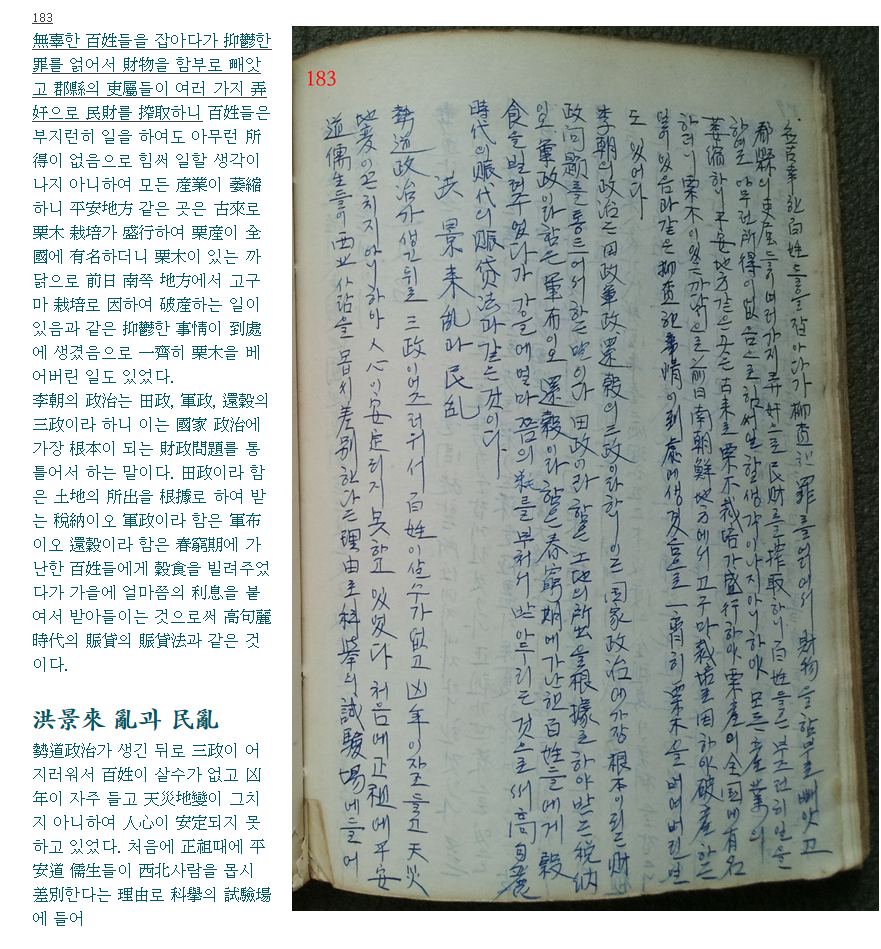 183
無辜한 百姓들을 잡아다가 抑鬱한
罪를 얽어서 財物을 함부로 빼앗
고 郡縣의 吏屬들이 여러 가지 弄
奸으로 民財를 搾取하니 百姓들은
부지런히 일을 하여도 아무런 所
得이 없음으로 힘써 일할 생각이
나지 아니하여 모든 産業이 萎縮
하니 平安地方 같은 곳은 古來로
栗木 栽培가 盛行하여 栗産이 全
國에 有名하더니 栗木이 있는 까
닭으로 前日 南쪽 地方에서 고구
마 栽培로 因하여 破産하는 일이
있음과 같은 抑鬱한 事情이 到處
에 생겼음으로 一齊히 栗木을 베
어버린 일도 있었다.
李朝의 政治는 田政, 軍政, 還穀의
三政이라 하니 이는 國家 政治에
가장 根本이 되는 財政問題를 통
틀어서 하는 말이다. 田政이라 함
은 土地의 所出을 根據로 하여 받
는 稅納이오 軍政이라 함은 軍布
이오 還穀이라 함은 春窮期에 가
난한 百姓들에게 穀食을 빌려주었
다가 가을에 얼마쯤의 利息을 붙
여서 받아들이는 것으로써 高句麗
時代의 賑貸의 賑貸法과 같은 것
이다.
洪景來 亂과 民亂
勢道政治가 생긴 뒤로 三政이 어
지러워서 百姓이 살수가 없고 凶
年이 자주 들고 天災地變이 그치
지 아니하여 人心이 安定되지 못
하고 있었다. 처음에 正祖때에 平
安道 儒生들이 西北사람을 몹시
差別한다는 理由로 科擧의 試驗場
에 들어
183
無辜한 百姓들을 잡아다가 抑鬱한 罪를 얽어서 財物을 함부로 빼앗고
郡縣의 吏屬들이 여러가지 弄奸으로 民財를 搾取하니 百姓들은 부즈런히 일을
하여도 아무런 所得이 없음으로 힘써 일할 생각이 나지 아니하야 모든 産業이
萎縮하니 平安地方 같은 곳은 古來로 栗木 栽培가 盛行하야 栗産이 全國에 有名
하더니 栗木이 있는 까닭으로 前日 南朝鮮 地方에서 고구마 栽培로 因하야 破産하는
일이 있음과 같은 抑鬱한 事情이 到處에 생겻음으로 一齊히 栗木을 베여버린 일
도 있어다
李朝의 政治는 田政 軍政 還穀의 三政이라 하니 이는 国家政治에 가장 根本이 되는 財
政問題를 통트러서 하는 말이다 田政이라 함은 土地의 所出을 根據로 하야 받는 稅納
이오 軍政이라 함은 軍布이오 還穀이라 함은 春窮期에 가난한 百姓들에게 穀
食을 빌려주엇다가 가을에 얼마쯤의 利를 부처서 받아드리는 것으로써 高句麗
時代의 賑代의 賑貸法과 같은 것이다
洪景来乱과 民乱
勢道政治가 생긴 뒤로 三政이 어즈러워서 百姓이 살수가 없고 凶年이 자조 들고 天災
地變이 끈치지 아니하야 人心이 安定되지 못하고 있엇다 처음에 正祖때에 平安
道 儒生들이 西北사람을 몹시 差別한다는 理由로 科擧의 試驗場에 들어